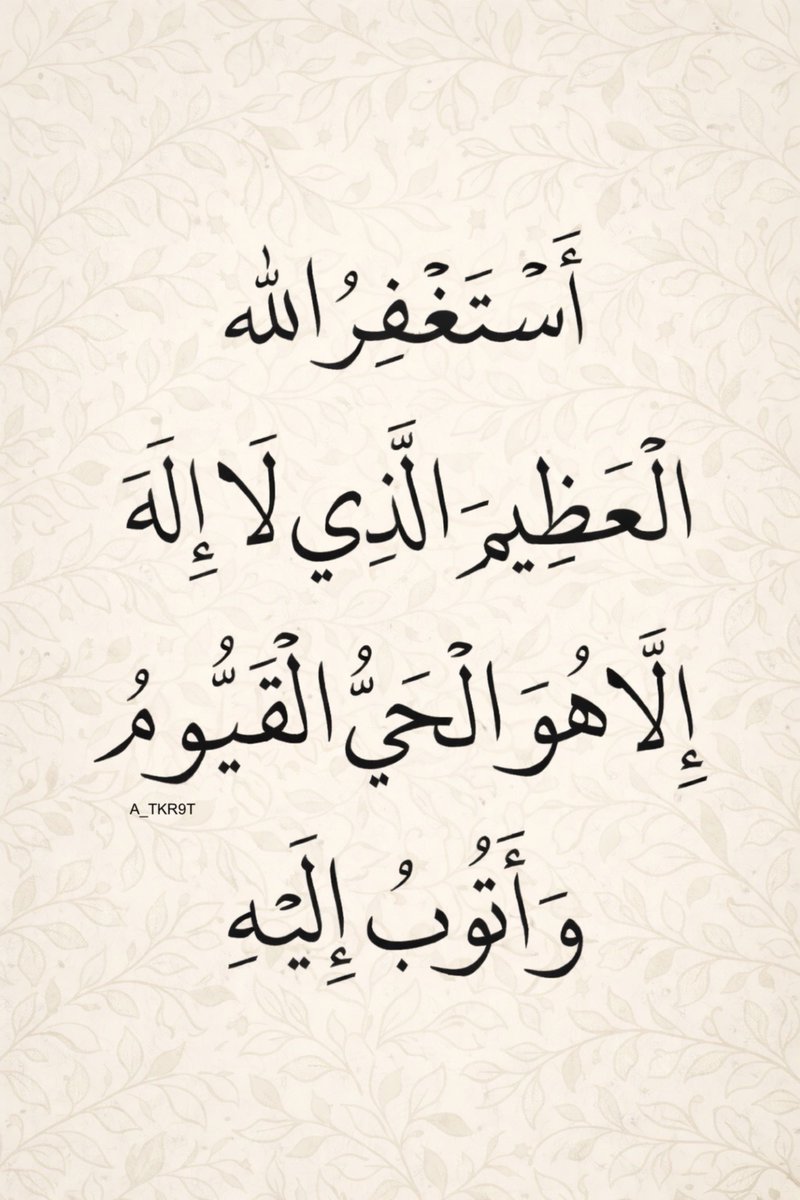 أَسْتَغْفِرُ الله
الْعَظِيمَ الَّذِي لَا إِلَهَ
إِلَّا هُوَ الْحَيُّ الْقَيُّومُ
A_TKR9T
وَأَتُوبُ إِلَيْهِ